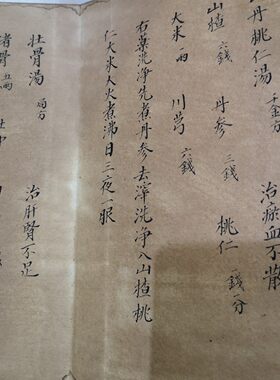 丹桃仁湯 千金方 治瘀血不散
山楂 六錢 丹參 三錢 桃仁 錢一分
大米 一兩 川芎 六錢
右藥洗淨先煮丹參去滓洗淨入山楂桃
仁大米入火煮沸日三夜一服
壯骨湯 局方 治肝腎不足
豬骨 五兩